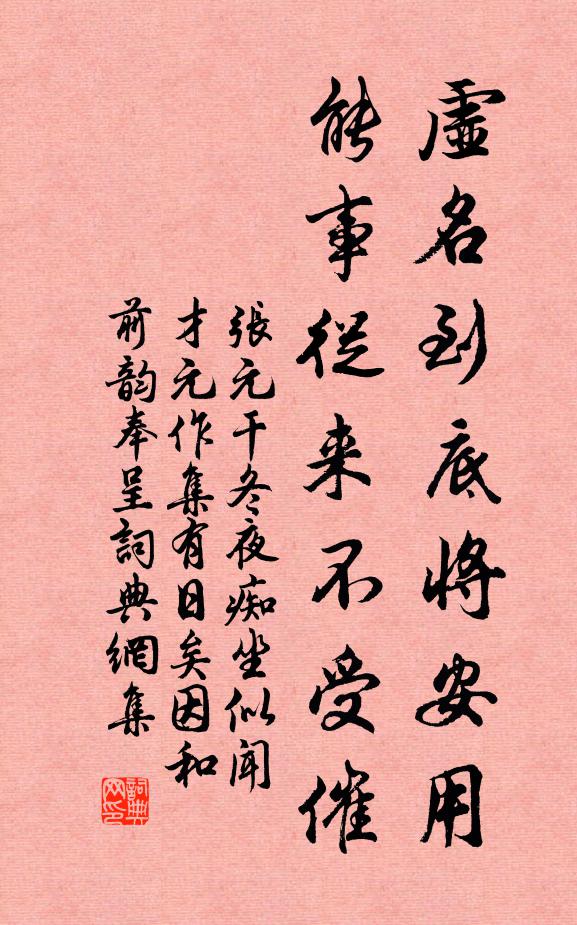 虛名到底將安用
能事從来不受催
張元干冬夜痴坐似聞
才元作集有日矣因和
前韵奉呈詞典網集
詞典网印